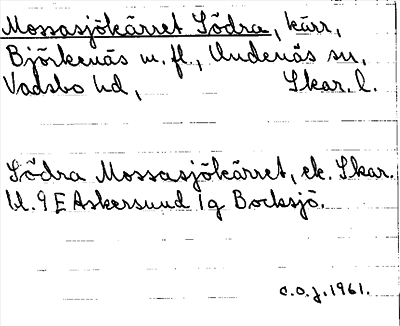 Mossasjökärret Södra, kärr,
Björkenäs m. fl., Undenäs sn,
Vadsbo hd, Skar. l.
Södra Mossasjökärret, ek. Skar.
bl. 9E Askersund 1g Bocksjö.
c.o.j. 1961.